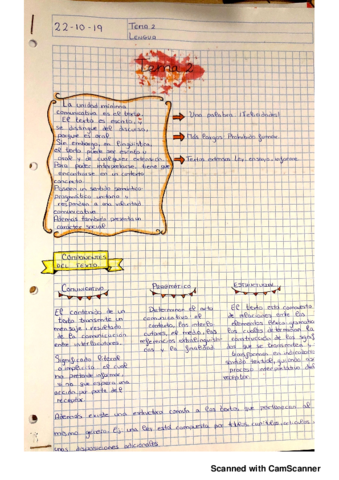 22-10-19
Tema 2
Lengua
Tema 2
La unidad mínima
comunicativa es el texto.
El texto es escrito, y
se distingue del discurso,
porque es oral.
Sin embargo, en lingüística,
el texto puede ser escrito u
oral y de cualquier extensión.
Para poder interpretarse, tiene que
encontrarse en un contexto
concreto.
Poseen un sentido semántico
pragmático unitario y
responden a una voluntad
comunicativa.
Además también presenta un
carácter social.
Una palabra: ¡Felicidades!
Más largos: Prohibido fumar
Textos extensos: Ley, ensayo, informe
Componentes
del texto
Comunicativo
Pragmático
Estructural
El contenido de un
texto transmite un
mensaje, resultado
de la comunicación
entre interlocutores.
Significado literal
o implícito, el cual
no pretende informar,
si no que espera una
acción por parte del
receptor.
Determinan el acto
comunicativo el
contexto, los interlo-
cutores, el medio, las
referencias extralingüísti-
cas y la finalidad.
El texto está compuesto
de relaciones entre los
elementos
las cuales determinan la
construcción de los signifi
dos que se
transforman en
sentido textual, guiando así
proceso interpretativo del
receptor.
Además existe una estructura común a los textos que pertenecen al
mismo género. Ej: una ley está compuesta por títulos, capítulos, artículos,
unas disposiciones adicionales
Scanned with CamScanner